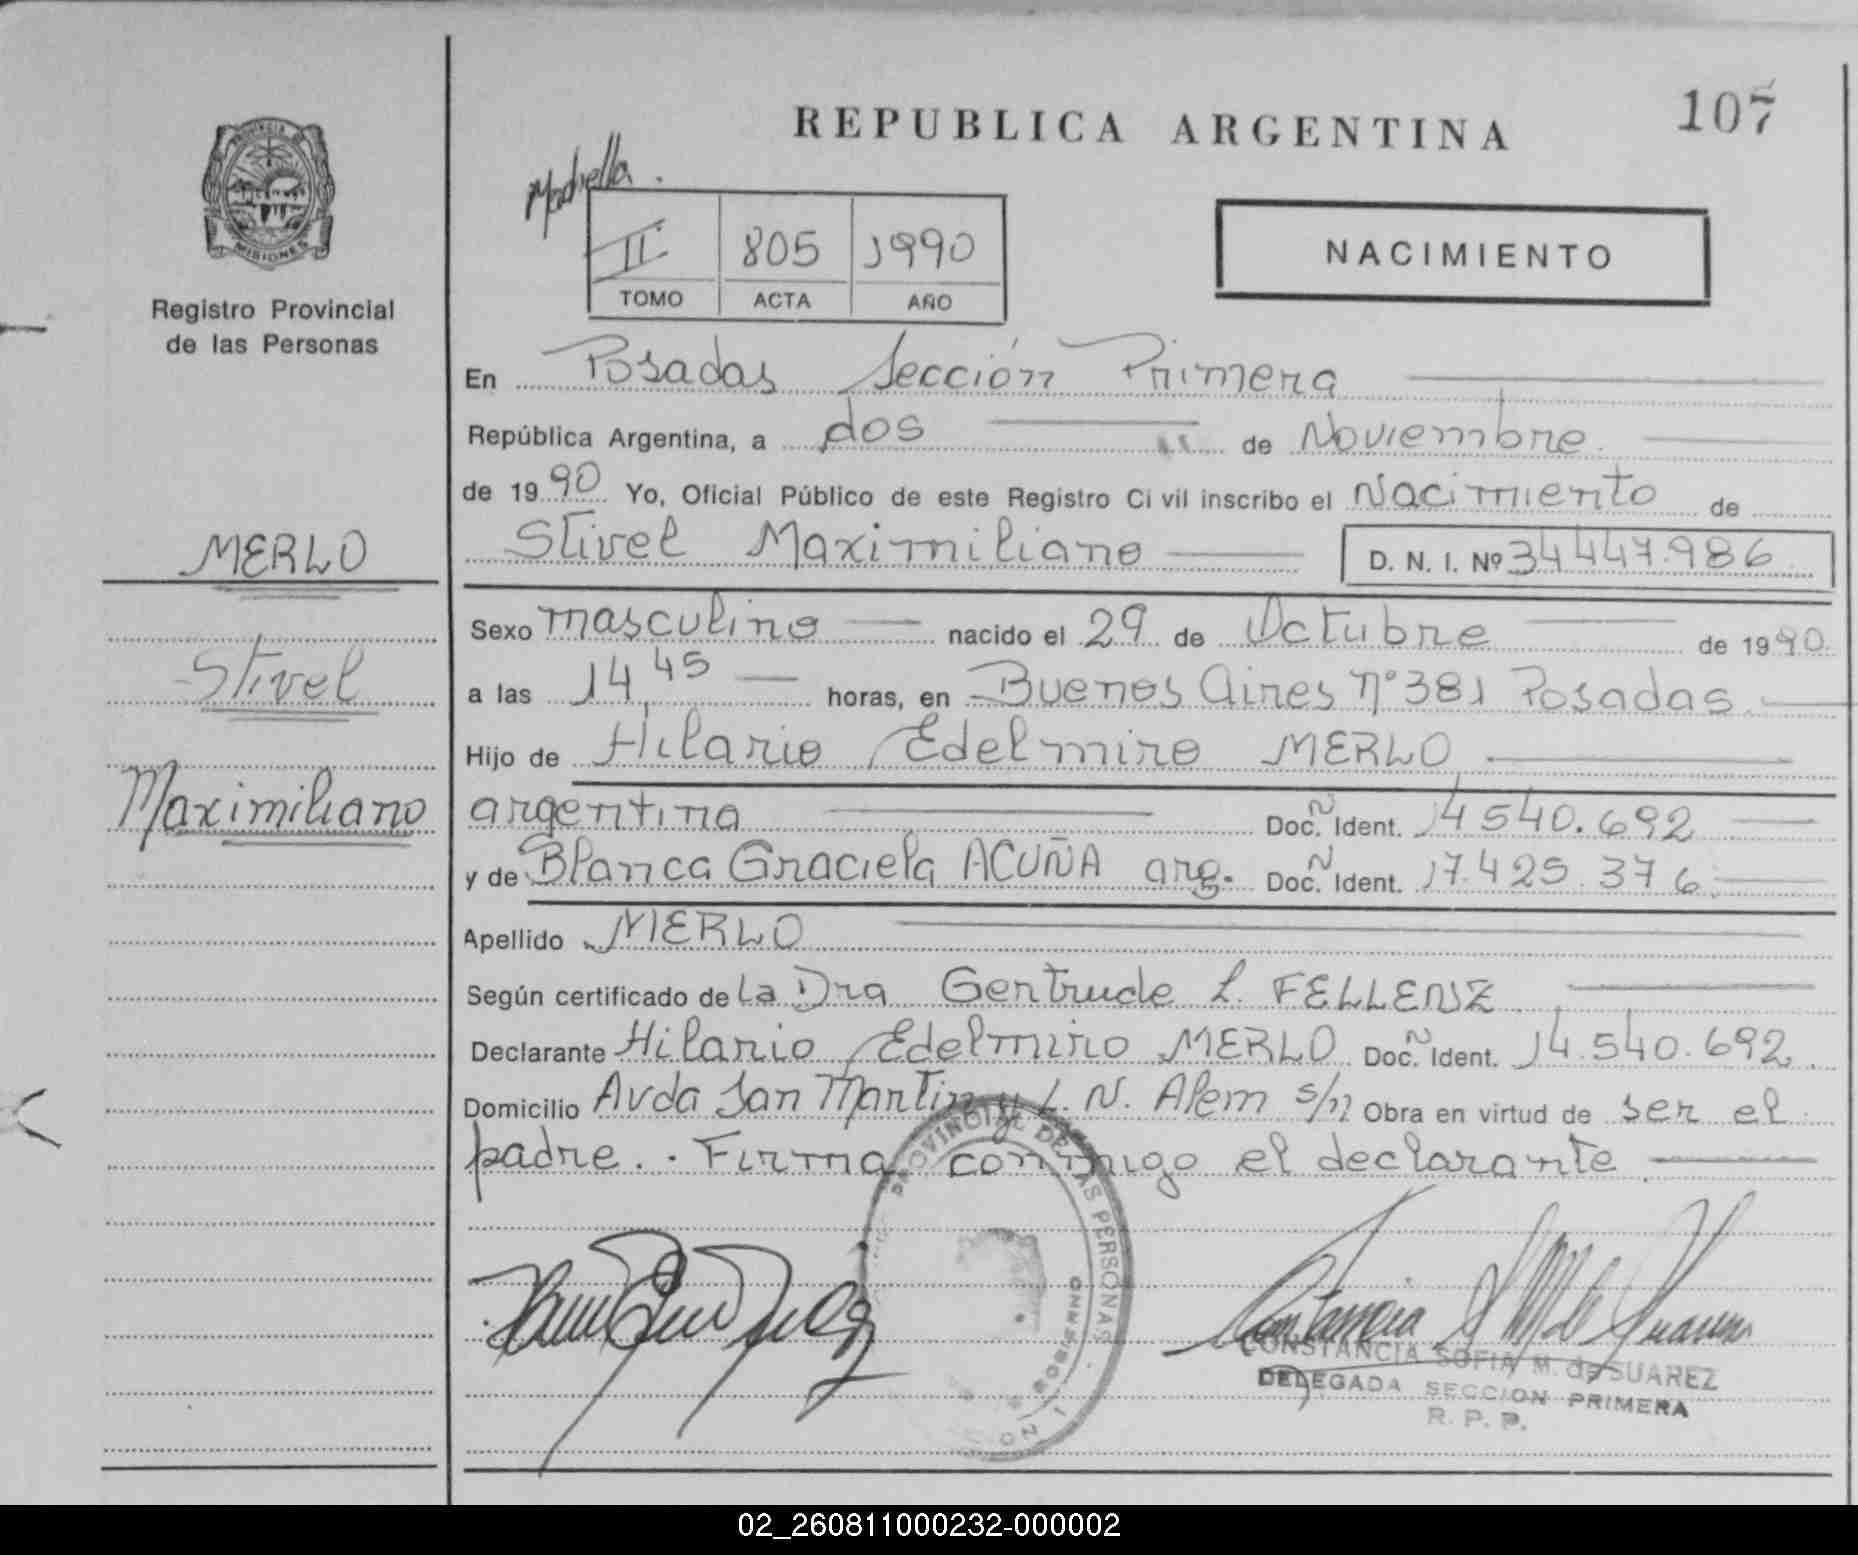 107
REPUBLICA ARGENTINA
PROVINCIA DE
MISIONES
Registro Provincial
de las Personas
II 805 1990
TOMO ACTA AÑO
NACIMIENTO
En Posadas Sección Primera
República Argentina, a dos de Noviembre
de 1990 Yo, Oficial Público de este Registro Civil inscribo el Nacimiento de
MERLO
Stivel Maximiliano D. N. I. Nº 34 447.986
Sexo masculino nacido el 29 de Octubre de 1990
Stivel
a las 14,45 horas, en Buenos Aires Nº 381 Posadas
Hijo de Hilario Edelmiro MERLO
Maximiliano
argentina Doc. Ñ Ident. 14 540.692
y de Blanca Graciela ACUÑA arg. Doc. Ñ Ident. 17.425.376
Apellido MERLO
Según certificado de La Dra Gertrude L. FELLENZ
Declarante Hilario Edelmiro MERLO Doc. Ñ Ident. 14.540.692
Domicilio Avda San Martin y L. N. Alem s/n Obra en virtud de ser el
padre.. Firma conmigo el declarante
PROVINCIAL DE LAS PERSONAS
GOBIERNO
CONSTANCIA SOFIA M. de SUAREZ
DELEGADA SECCION PRIMERA
R. P. P.
02_260811000232-000002